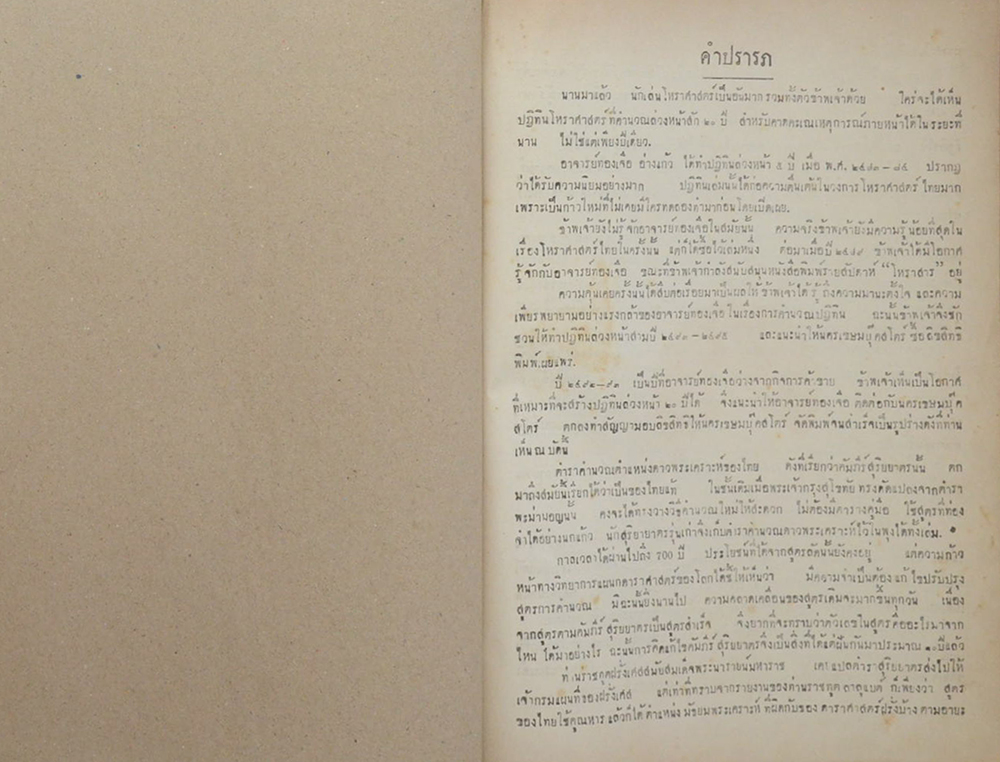 คำปรารภ
นานมาแล้ว นักเล่นโหราศาสตร์เป็นอันมาก รวมทั้งตัวข้าพเจ้าด้วย ใคร่จะได้เห็น
ปฏิทินโหราศาสตร์ที่คำนวณล่วงหน้าสัก ๒๐ ปี สำหรับคาดคะเนเหตุการณ์ภายหน้าได้ในระยะที่
นาน ไม่ใช่แต่เพียงปีเดียว.
อาจารย์ทองเจือ อ่างแก้ว ได้ทำปฏิทินล่วงหน้า ๕ ปี เมื่อ พ.ศ. ปรากฏ
ว่าได้รับความนิยมอย่างมาก ปฏิทินเล่มนั้นได้ก่อความตื่นเต้นในวงการโหราศาสตร์ไทยมาก
เพราะเป็นก้าวใหม่ที่ไม่เคยมีใครทดลองทำมาก่อนโดยเบ็ดเสร็จ.
ข้าพเจ้ายังไม่รู้จักอาจารย์ทองเจือในสมัยนั้น ความจริงข้าพเจ้ายังมีความรู้น้อยที่สุดใน
เรื่องโหราศาสตร์ไทยในครั้งนั้น แต่ก็ได้ซื้อไว้เล่มหนึ่ง ต่อมาเมื่อปี ข้าพเจ้าได้มีโอกาส
รู้จักกับอาจารย์ทองเจือ ขณะที่ข้าพเจ้ากำลังสนับสนุนหนังสือพิมพ์รายสัปดาห์ “โหราสาร” อยู่
ความคุ้นเคยครั้งนั้นได้สืบต่อเรื่อยมาเป็นผลให้ข้าพเจ้าได้รู้ถึงความมานะตั้งใจ และความ
เพียรพยายามอย่างแรงกล้าของอาจารย์ทองเจือในเรื่องการคำนวณปฏิทิน ฉะนั้นข้าพเจ้าจึงชัก
ชวนให้ทำปฏิทินล่วงหน้าสามปี และแนะนำให้นครเขษมบุ๊คสโตร์ ซื้อลิขสิทธิ
พิมพ์เผยแพร่.
ปี ๒๔๙๒—๙๓ เป็นปีที่อาจารย์ทองเจือว่างจากกิจการค้าขาย ข้าพเจ้าเห็นเป็นโอกาส
ที่เหมาะที่จะสร้างปฏิทินล่วงหน้า ๒๐ ปีได้ จึงแนะนำให้อาจารย์ทองเจือ ติดต่อกับนครเขษมบุ๊ค
สโตร์ ตกลงทำสัญญามอบลิขสิทธิให้นครเขษมบุ๊คสโตร์ จัดพิมพ์จนสำเร็จเป็นรูปร่างดังที่ท่าน
เห็น ณ บัดนี้
ตำราคำนวณตำแหน่งดาวพระเคราะห์ของไทย ดังที่เรียกว่าคัมภีร์สุริยยาตรนั้น ตก
มาถึงสมัยนี้เรียกได้ว่าเป็นของไทยแท้ ในชั้นเดิมเมื่อพระเจ้ากรุงสุโขทัย ทรงดัดแปลงจากตำรา
พะม่ามอญนั้น คงจะได้ทรงวางวิธีคำนวณใหม่ให้สะดวก ไม่ต้องมีตารางคู่มือ ใช้สูตรที่ท่อง
จำได้อย่างนกแก้ว นักสุริยยาตรรุ่นเก่าจึงเก็บตำราคำนวณดาวพระเคราะห์ไว้ในพุงได้ทั้งเล่ม.
กาลเวลาได้ผ่านไปถึง 700 ปี ประโยชน์ที่ได้จากสูตรลัดนั้นยังคงอยู่ แต่ความก้าว
หน้าทางวิทยาการแผนกดาราศาสตร์ของโลกได้ชี้ให้เห็นว่า มีความจำเป็นต้องแก้ไขปรับปรุง
สูตรการคำนวณ มิฉะนั้นยิ่งนานไป ความคลาดเคลื่อนของสูตรเดิมจะมากขึ้นทุกวัน เนื่อง
จากสูตรตามคัมภีร์สุริยยาตรเป็นสูตรสำเร็จ จึงยากที่จะทราบว่าตัวเลขในสูตรคืออะไรมาจาก
ไหน ได้มาอย่างไร ฉะนั้นการคิดแก้ไขคัมภีร์สุริยยาตรจึงเป็นสิ่งที่ได้แต่ฝันกันมาประมาณ ปีแล้ว
ท่านราชทูตฝรั่งเศสสมัยสมเด็จพระนารายน์มหาราช เคยแปลตำราสุริยยาตรส่งไปให้
เจ้ากรมแผนที่ของฝรั่งเศส แต่เท่าที่ทราบจากรายงานของท่านราชทูต ลาลูแบต์ ก็เพียงว่า สูตร
ของไทยใช้คูณหาร แล้วก็ได้ตำแหน่ง มัธยมพระเคราะห์ ที่ผิดกับของ ดาราศาสตร์ฝรั่งบ้าง ตามอายะ